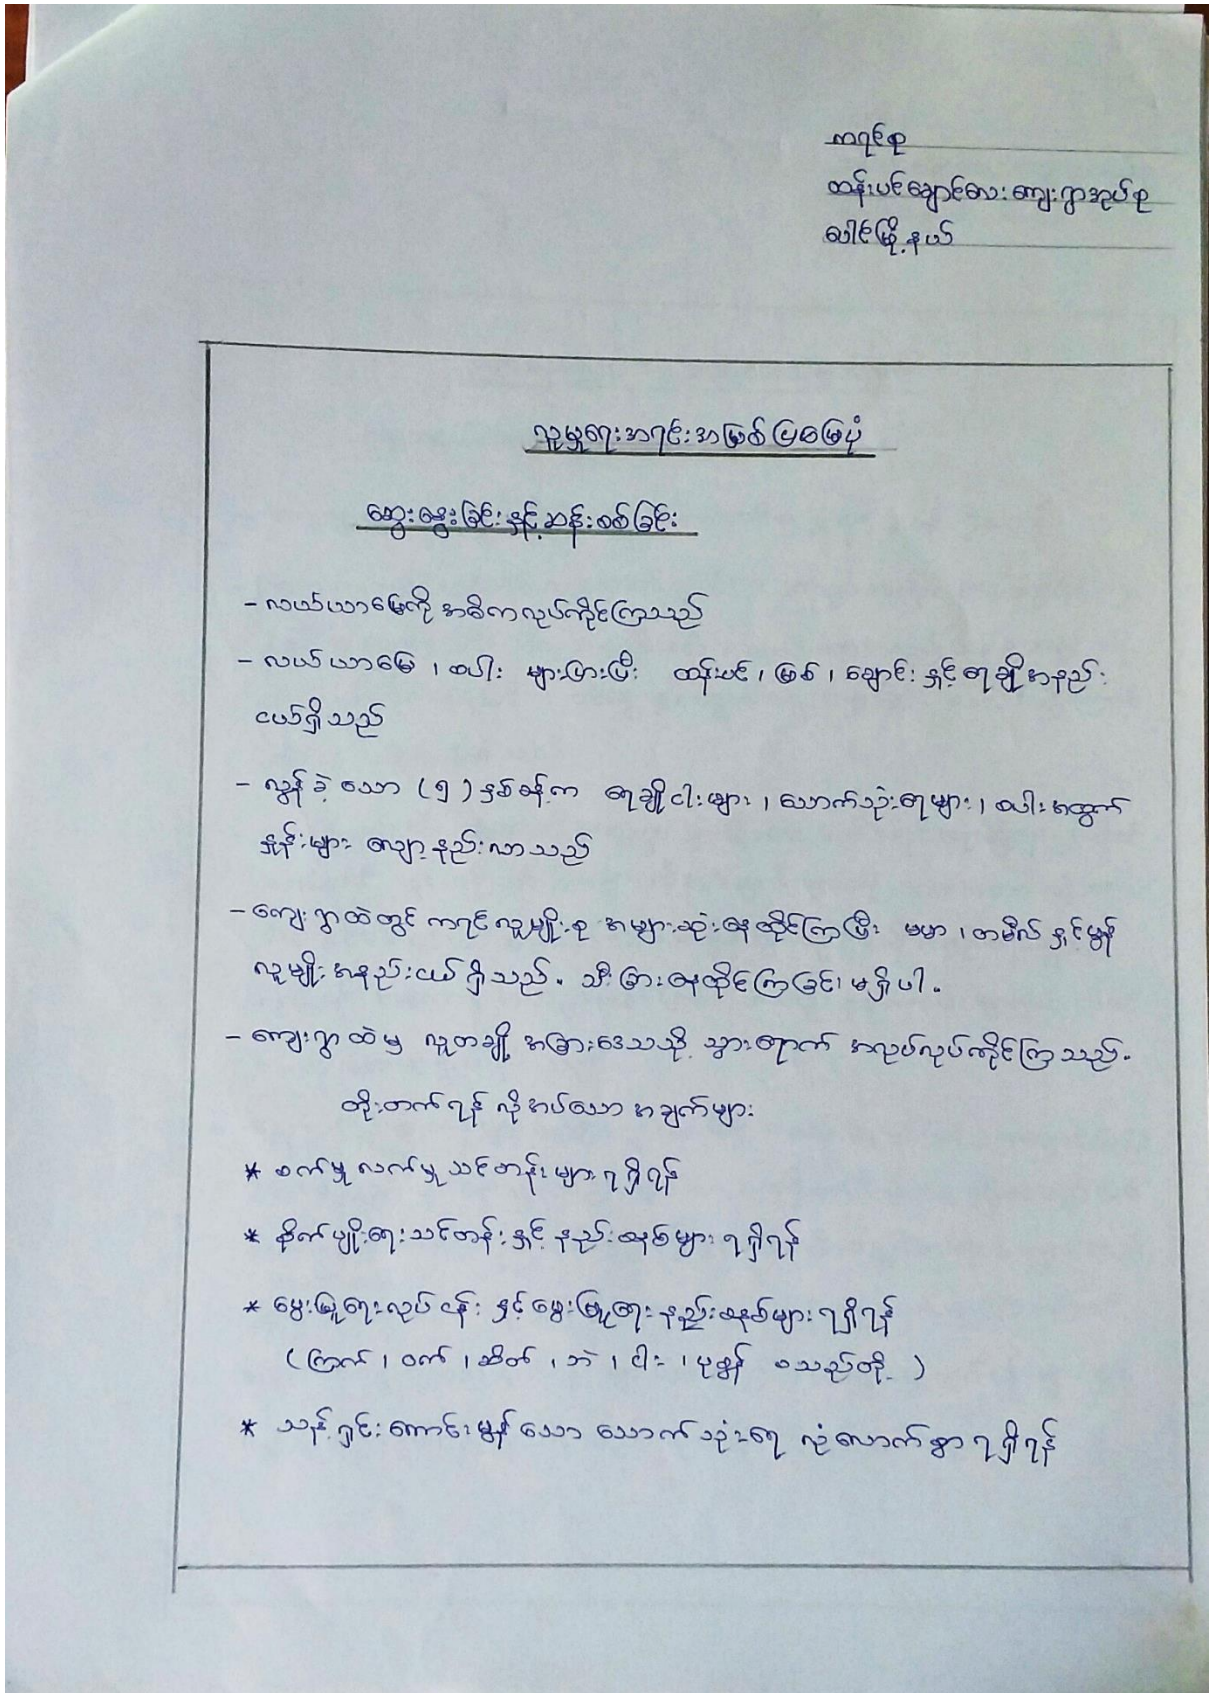 ကရင်စု
ထန်းပင်ချောင်လေးကျေးရွာအုပ်စု
ပေါင်မြို့နယ်
လူမှုရေးအရင်းအမြစ်ပြမြေပုံ
ဆွေးနွေးခြင်းနှင့်ဆန်းစစ်ခြင်း
- လယ်ယာမြေကို အဓိကလုပ်ကိုင်ကြသည်
- လယ်ယာမြေ ၊ စပါး များပြားပြီး ထန်းပင် ၊ မြစ် ၊ ချောင်း နှင့် ရေချိုအနည်း
ငယ်ရှိသည်
- လွန်ခဲ့သော (၅) နှစ်ခန့်က ရေချိုငါးများ ၊ သောက်သုံးရေများ ၊ စပါးအထွက်
နှုန်းများ လျော့နည်းလာသည်
- ကျေးရွာထဲတွင် ကရင်လူမျိုးစု အများဆုံးနေထိုင်ကြပြီး ဗမာ ၊ တမီလ် နှင့်မွန်
လူမျိုးအနည်းငယ်ရှိသည်။ သီးခြားနေထိုင်ကြခြင်း မရှိပါ။
- ကျေးရွာထဲမှ လူတချို့ အခြားဒေသသို့ သွားရောက် အလုပ်လုပ်ကိုင်ကြသည်။
တိုးတက်ရန် လိုအပ်သော အချက်များ
* စက်မှု လက်မှု သင်တန်းများရရှိရန်
* စိုက်ပျိုးရေးသင်တန်းနှင့် နည်းစနစ်များ ရရှိရန်
* မွေးမြူရေးလုပ်ငန်း နှင့်မွေးမြူရေးနည်းစနစ်များရရှိရန်
( ကြက် ၊ ဝက် ၊ ဆိတ် ၊ ဘဲ ၊ ငါး ၊ ပုစွန် စသည်တို့ )
* သန့်ရှင်းကောင်းမွန်သော သောက်သုံးရေ လုံလောက်စွာရရှိရန်